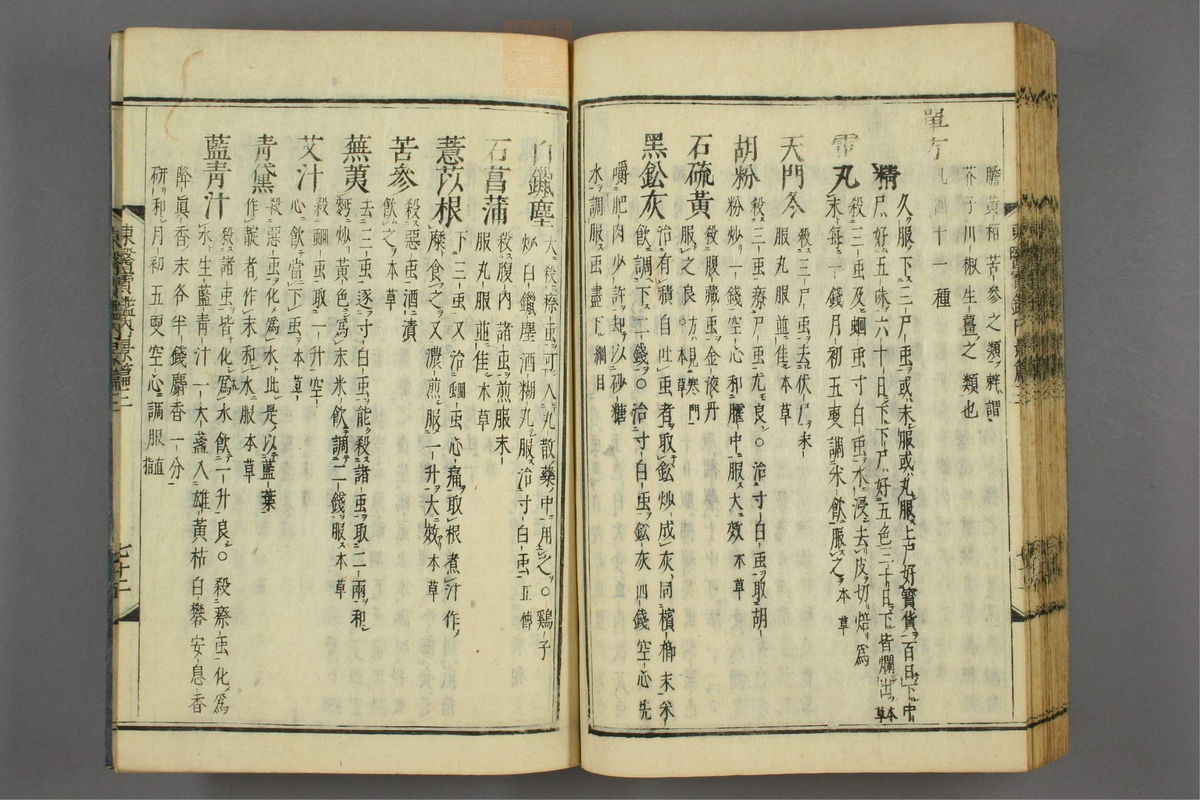 膽黃稍苦參之類蜯謂
芥子川椒生薑之類也
單方 凡四十一種
精 久服下三尸虫或末服或丸服上尸好寶貨百日下中
尸好五味六十日下下尸好五色三十日下皆爛出本草
雷丸 殺三虫及蛔虫寸白虫水浸去皮切焙爲
末每一錢月初五更調米飮服之本草
天門冬 殺三尸虫去伏尸末
服丸服並佳本草
胡粉 殺三虫療尸虫尤良○治寸白虫取胡
粉炒一錢空心和臛中服大效本草
石硫黃 殺腹藏虫金液丹
服之良方見寒門本草
黑鈆灰 治有積自吐虫者取鈆炒成灰同檳榔末米
飮調下二錢○治寸白虫鈆灰四錢空心先
嚼肥肉少許却以砂糖
水調服虫盡下綱目
白鑞塵 大殺瘵虫可入丸散藥中用之○鷄子
炒白鑞塵酒糊丸服治寸白虫正傳
石菖蒲 殺腹內諸虫煎服末
服丸服並佳本草
薏苡根 下三虫又治蛔虫心痛取根煮汁作
糜食之又濃煎服一升大效本草
苦參 殺惡虫酒漬
飮之本草
蕪荑 去三虫逐寸白虫能殺諸虫取二兩和
麪炒黃色爲末米飮調二錢服本草
艾汁 殺蛔虫取一升空
心飮當下虫本草
靑黛 殺惡虫化爲水此是以藍葉
作靛者作末和水服本草
藍靑汁 殺諸虫皆化爲水飮一升良○殺瘵虫化爲
水生藍靑汁一大盞入雄黃枯白礬安息香
降眞香末各半錢麝香一分
硏和月初五更空心調服
東醫寶鑑內景篇三
七十二